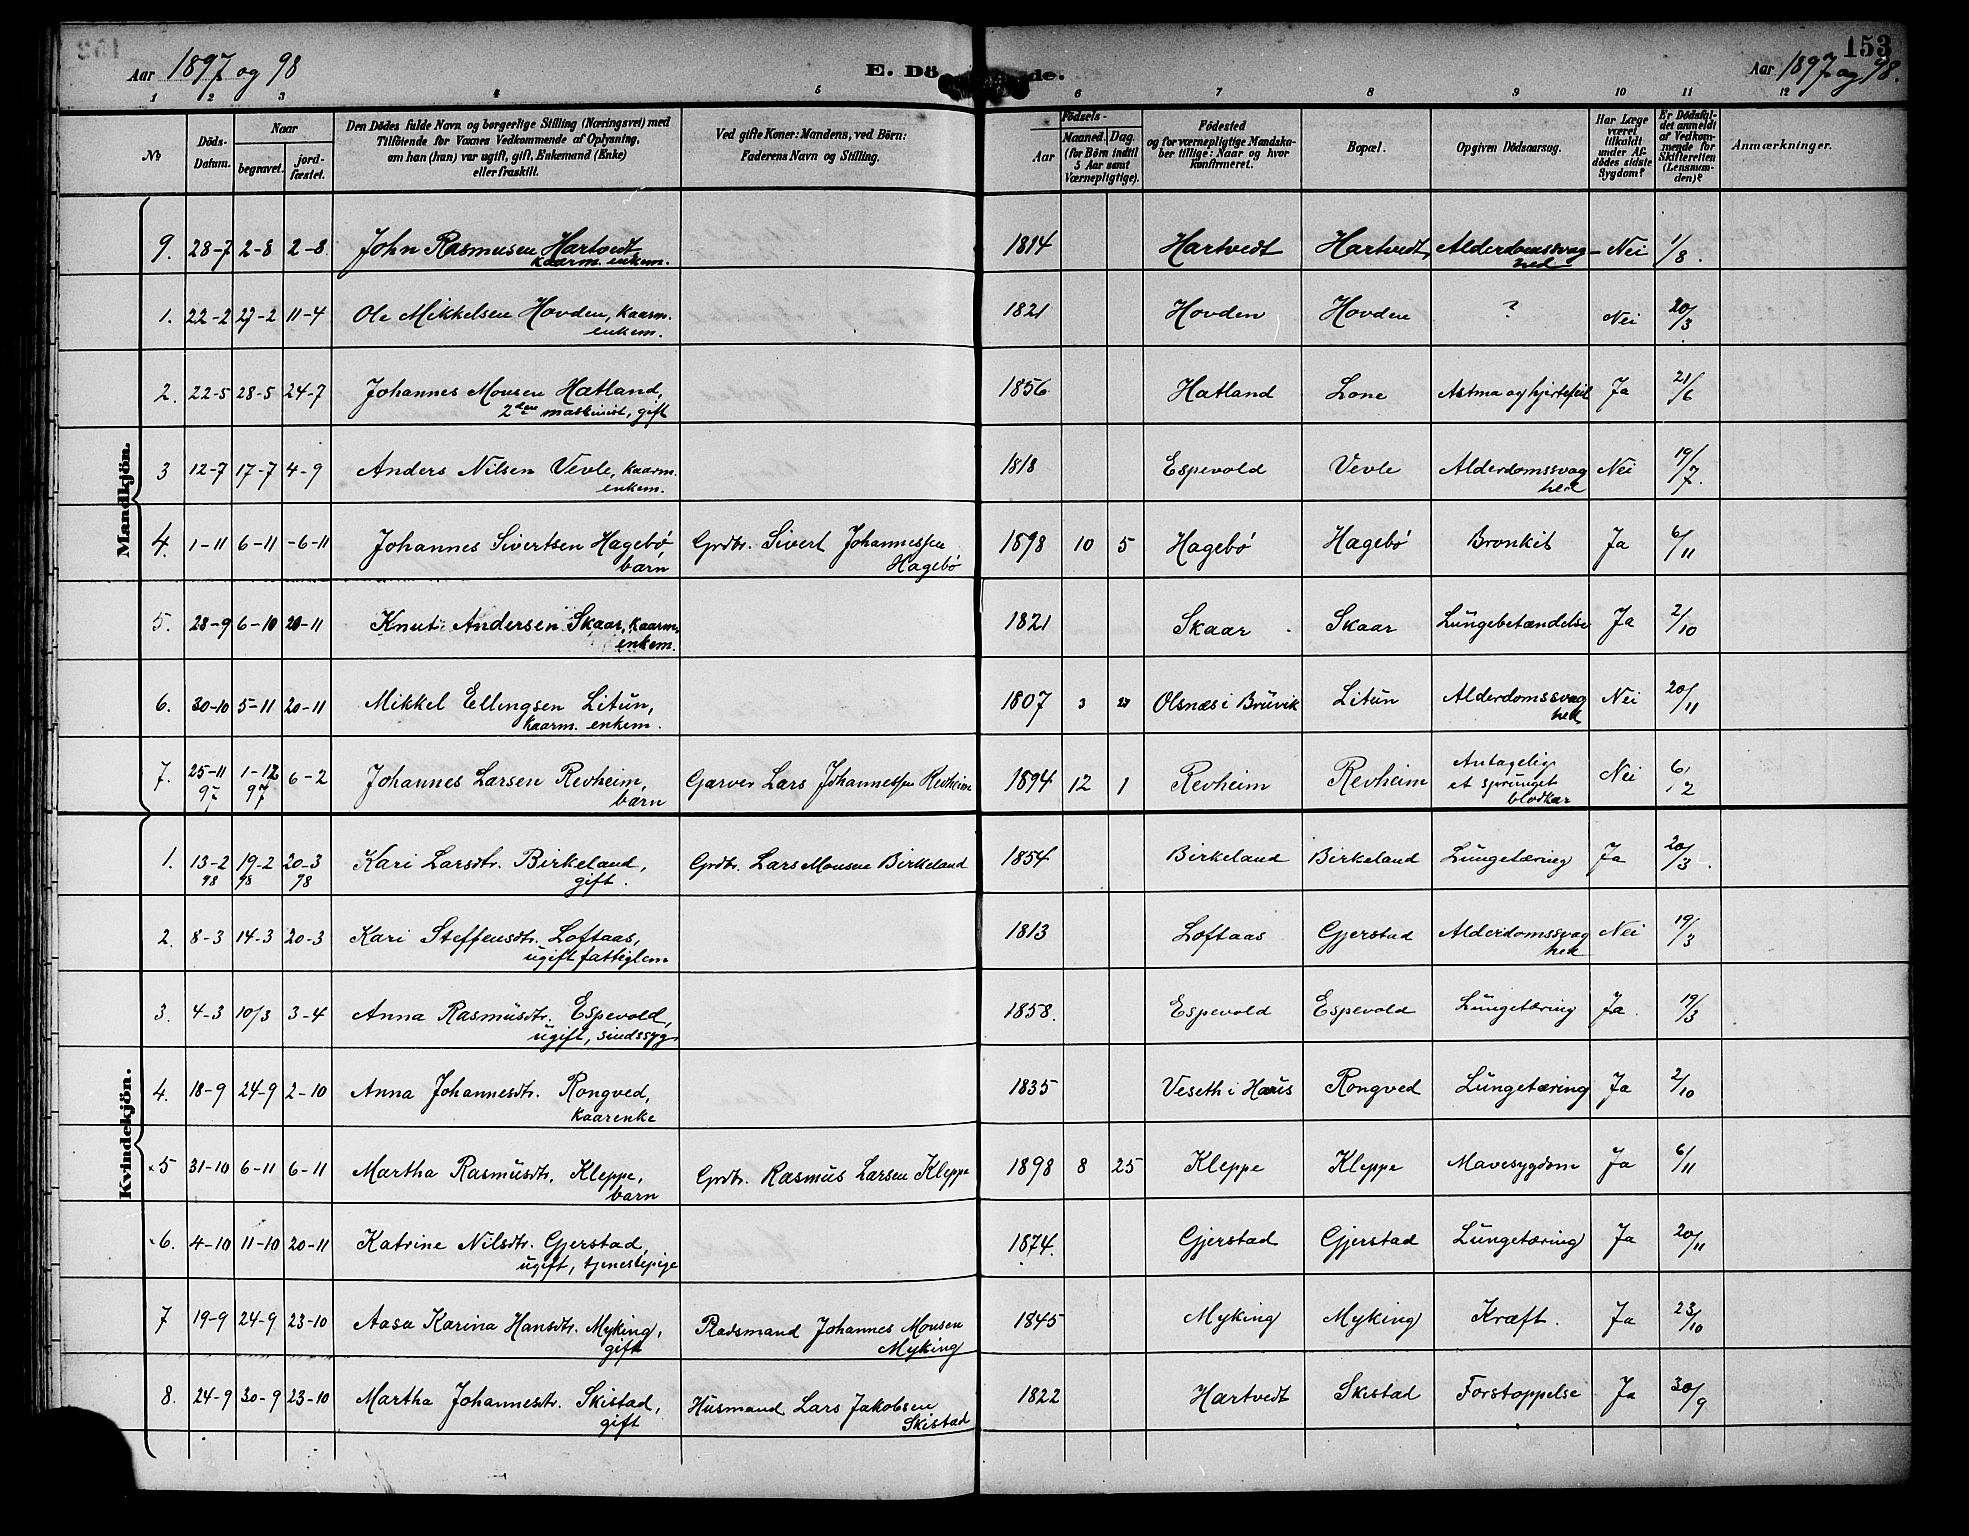 Aar 1897 og 98
E. Dö de.
153
Aar 1897 og 98.
1 2 3 4 5 6 7 8 9 10 11 12
No
Döds-Datum.
Naar
begravet.
jord-fæstet.
Den Dödes fulde Navn og borgerlige Stilling (Næringsvei) med
Tilföiende for Voxnes Vedkommende af Oplysning,
om han (hun) var ugift, gift, Enkemand (Enke)
eller fraskilt.
Ved gifte Koner: Mandens, ved Börn:
Faderens Navn og Stilling.
Födsels-
Aar
Maaned. Dag.
(for Börn indtil
5 Aar samt
Værnepligtige).
Födested
og for værnepligtige Mandska-
ber tillige: Naar og hvor
konfirmeret.
Bopæl.
Opgiven Dödsaarsag.
Har Læge
været
tilkaldt
under Af-
dödes sidste
Sygdom?
Er Dödsfal-
det anmeldt
af Vedkom-
mende for
Skifteretten
(Lensman-
den)?
Anmærkninger.
Mandkjön.
9. 28-7 2-8 2-8 John Rasmusen Hartvedt, 1814 Hartvedt Hartvedt Alderdomssvag- Nei 1/8.
kaarm. enkem. hed
1. 22-2 27-2 11-4 Ole Mikkelsen Hovden, kaarm. 1821 Hovden Hovden ? Nei 20/3
enkem.
2. 22-5 28-5 24-7 Johannes Monsen Hatland, 1856 Hatland Lone Astma og hjertefeil Ja 21/6
2den maskinist, gift
3 12-7 17-7 4-9 Anders Nilsen Vevle, kaarm. 1818 Espevold Vevle Alderdomssvag Nei 19/7.
enkem. hed
4. 1-11 6-11 -6-11 Johannes Sivertsen Hagebø, Grdbr. Sivert Johannessen 1898 10 5 Hagebø Hagebø Bronkit Ja 6/11
barn Hagebø
5. 28-9 6-10 20-11 Knut Andersen Skaar, kaarm. 1821 Skaar Skaar Lungebetændelse Ja 2/10
enkem.
6. 30-10 5-11 20-11 Mikkel Ellingsen Litun, 1807 3 27 Olsnæs i Bruvik Litun Alderdomssvag Nei 20/11
kaarm. enkem. hed
7. 25-11 97 1-12 97 6-2 Johannes Larsen Revheim, Garver Lars Johannessen Revheim 1894 12 1 Revheim Revheim Antagelig Nei 6/2
barn et sprunget
blodkar
Kvindekjön.
1. 13-2 98 19-2 98 20-3 98 Kari Larsdtr. Birkeland, Grdbr. Lars Monsen Birkeland 1854 Birkeland Birkeland Lungetæring Ja 20/3.
gift.
2. 8-3 14-3 20-3 Kari Steffensdtr. Loftaas, 1813 Loftaas Gjerstad Alderdomssvag Nei 19/3
ugift fattiglem hed
3. 4-3 10/3 3-4 Anna Rasmusdtr. Espevold, 1858. Espevold Espevold Lungetæring Ja. 19/3
ugift, sindssyg
4. 18-9 24-9 2-10 Anna Johannesdtr. Rongved, 1835 Veseth i Haus Rongved Lungetæring Ja 2/10
kaarenke
5 31-10 6-11 6-11 Martha Rasmusdtr. Kleppe, Grdbr. Rasmus Larsen Kleppe 1898 8 25 Kleppe Kleppe Mavesygdom Ja 6/11
barn
6. 4-10 11-10 20-11 Katrine Nilsdtr. Gjerstad, 1874. Gjerstad Gjerstad Lungetæring Ja 20/11
ugift, tjenestepige
7 19-9 24-9 23-10 Aasa Karina Hansdtr. Myking, Pladsmand Johannes Monsen 1845 Myking Myking Kræft. Ja 23/10
gift Myking
8. 24-9 30-9 23-10 Martha Johannesdtr. Skistad, Husmand Lars Jakobsen 1822 Hartvedt Skistad Forstoppelse Ja 30/9
gift Skistad